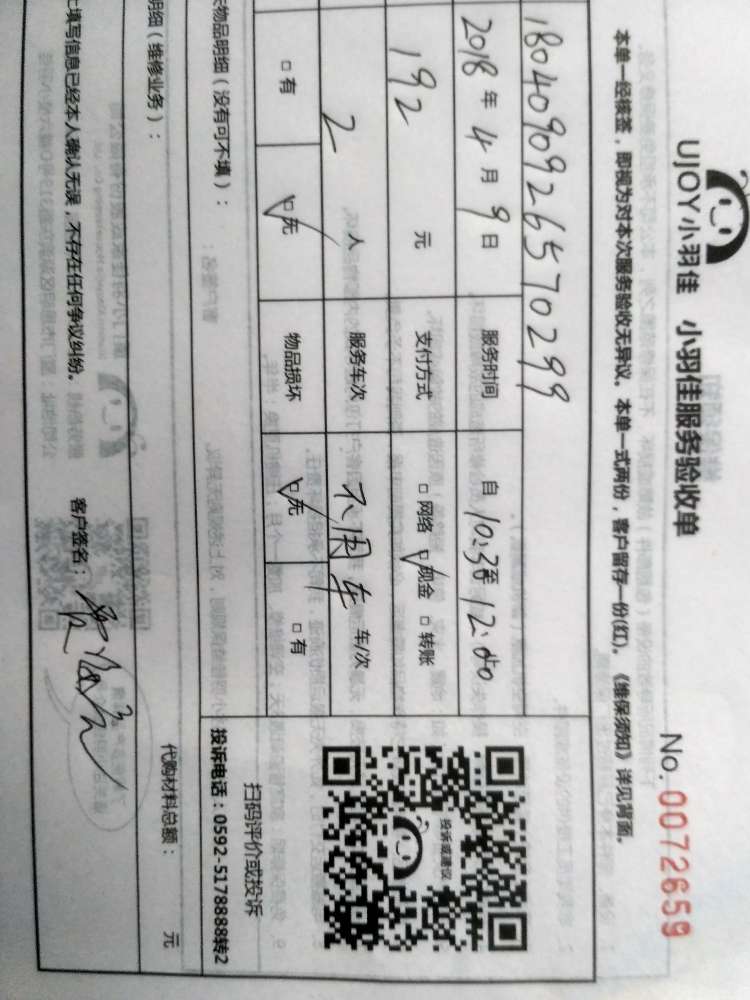 UJOY小羽佳 小羽佳服务验收单
No. 0072659
本单一经核签，即视为对本次服务验收无异议。本单一式两份，客户留存一份(红)。《维保须知》详见背面。
1804090926570299
2018年4月9日 服务时间 自10:30至12:00
192元 支付方式 □网络 ☑现金 □转账
2人 服务车次 不用车 车/次
□有 ☑无 物品损坏 ☑无 □有
投诉或建议
扫码评价或投诉
投诉电话：0592-5178888转2
物品明细（没有可不填）：
明细（维修业务）：
代购材料总额： 元
填写信息已经本人确认无误，不存在任何争议纠纷。
客户签名：